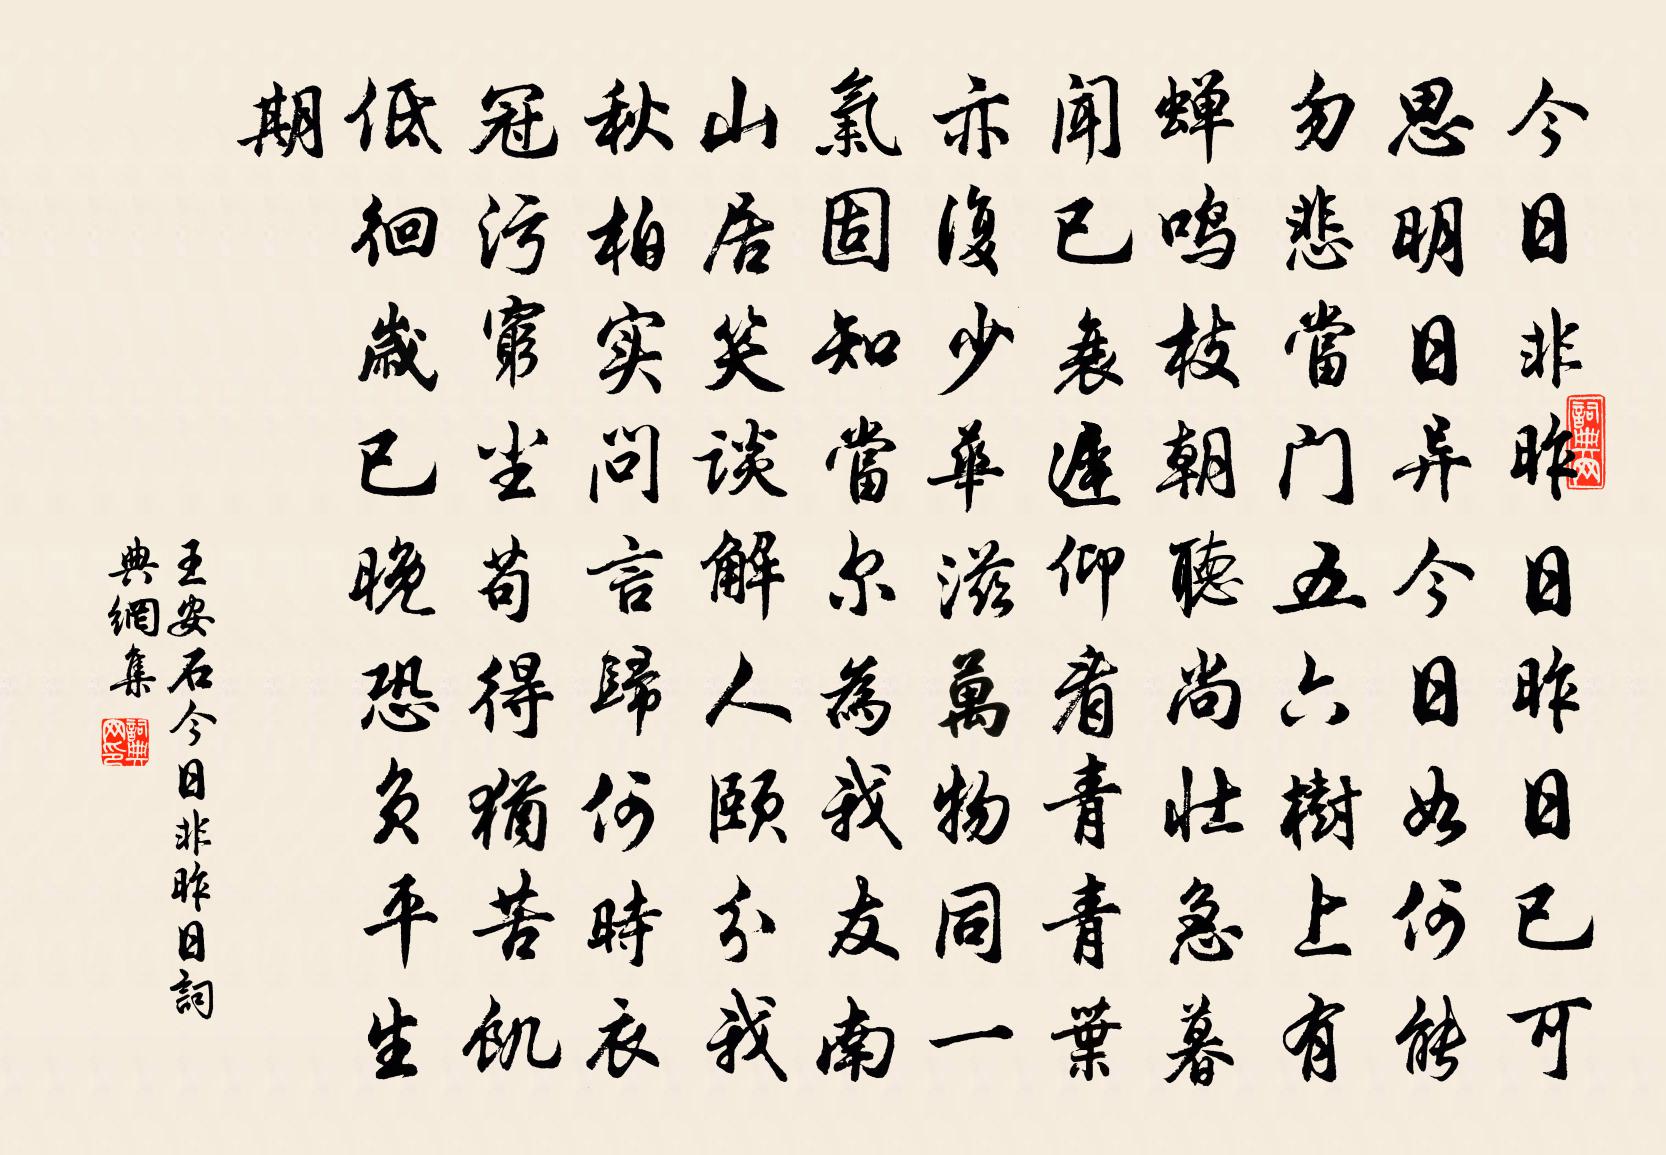 今日非昨日昨日已可
思明日异今日如何能
勿悲當门五六樹上有
蝉鸣枝朝聽尚壮急暮
闻已衰遲仰看青青葉
亦復少華滋萬物同一
氣固知當尔為我友南
山居笑談解人颐分我
秋柏实问言歸何時衣
冠污窮尘苟得猶苦飢
低徊歲已晚恐负平生
期
王安石今日非昨日詞
典網集
詞典网
詞典网印